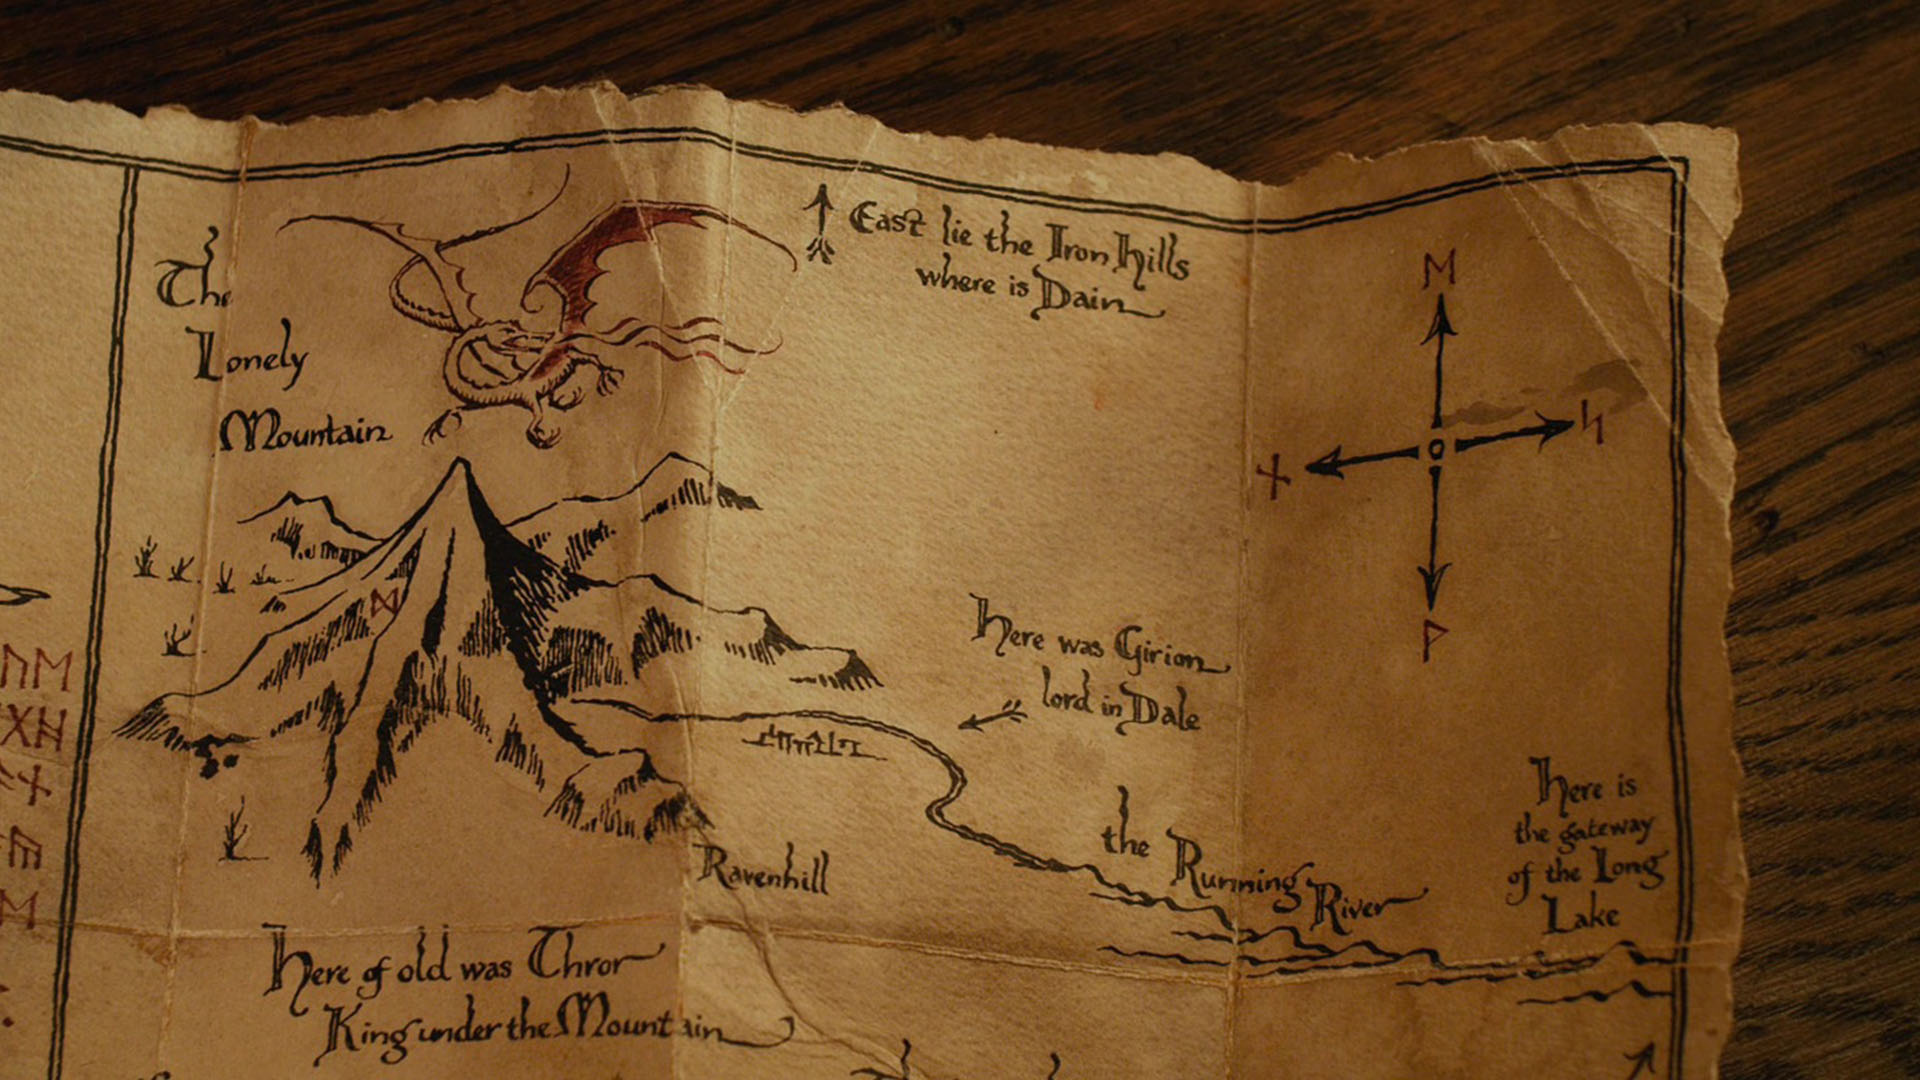 The
Lonely
Mountain
East lie the Iron Hills
where is Dain
ᛖ
ᛋ
ᚾ
ᚹ
ᛞ
Here was Girion
lord in Dale
the Running
River
Here is
the gateway
of the Long
Lake
Ravenhill
Here of old was Thror
King under the Mountain